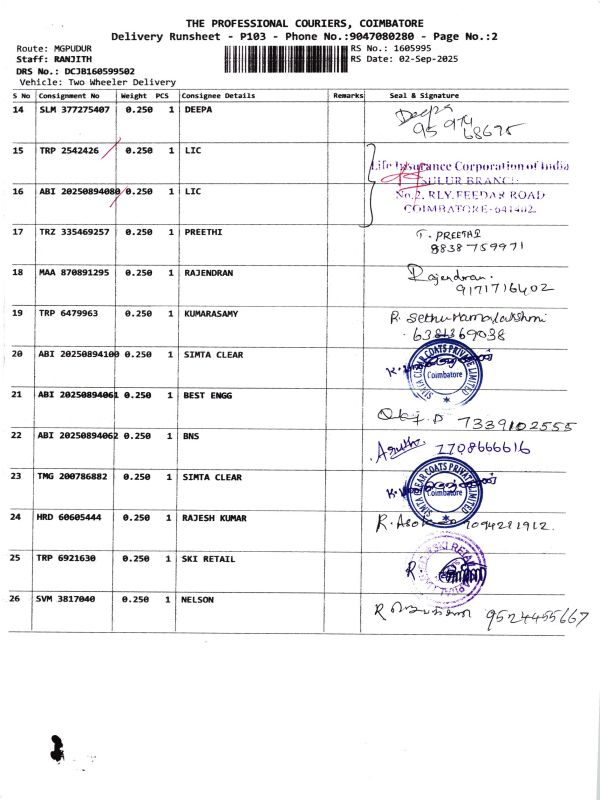 THE PROFESSIONAL COURIERS, COIMBATORE
Delivery Runsheet - P103 - Phone No.:9047080280 - Page No.:2
Route: MGPUDUR RS No.: 1605995
Staff: RANJITH RS Date: 02-Sep-2025
DRS No.: DCJB160599502
Vehicle: Two Wheeler Delivery
S No Consignment No Weight PCS Consignee Details Remarks Seal & Signature
14 SLM 377275407 0.250 1 DEEPA Deepa
95 974 68675
15 TRP 2542426 0.250 1 LIC
Life Insurance Corporation of India
SULUR BRANCH
16 ABI 20250894080 0.250 1 LIC No.2, RLY.FEEDAR ROAD
COIMBATORE-641402.
17 TRZ 335469257 0.250 1 PREETHI T. PREETHI
8838759971
18 MAA 870891295 0.250 1 RAJENDRAN Rajendran.
9171716402
19 TRP 6479963 0.250 1 KUMARASAMY R. Sethuramalakshmi
6381369038
20 ABI 20250894100 0.250 1 SIMTA CLEAR SIMTA CLEAR COATS PRIVATE LIMITED
Coimbatore
21 ABI 20250894061 0.250 1 BEST ENGG
7339102555
22 ABI 20250894062 0.250 1 BNS 7708666616
23 TMG 200786882 0.250 1 SIMTA CLEAR SIMTA CLEAR COATS PRIVATE LIMITED
Coimbatore
24 HRD 60605444 0.250 1 RAJESH KUMAR R. Asokan 9094281912.
25 TRP 6921630 0.250 1 SKI RETAIL SKI RETAIL
R.
26 SVM 3817040 0.250 1 NELSON R 9524455667